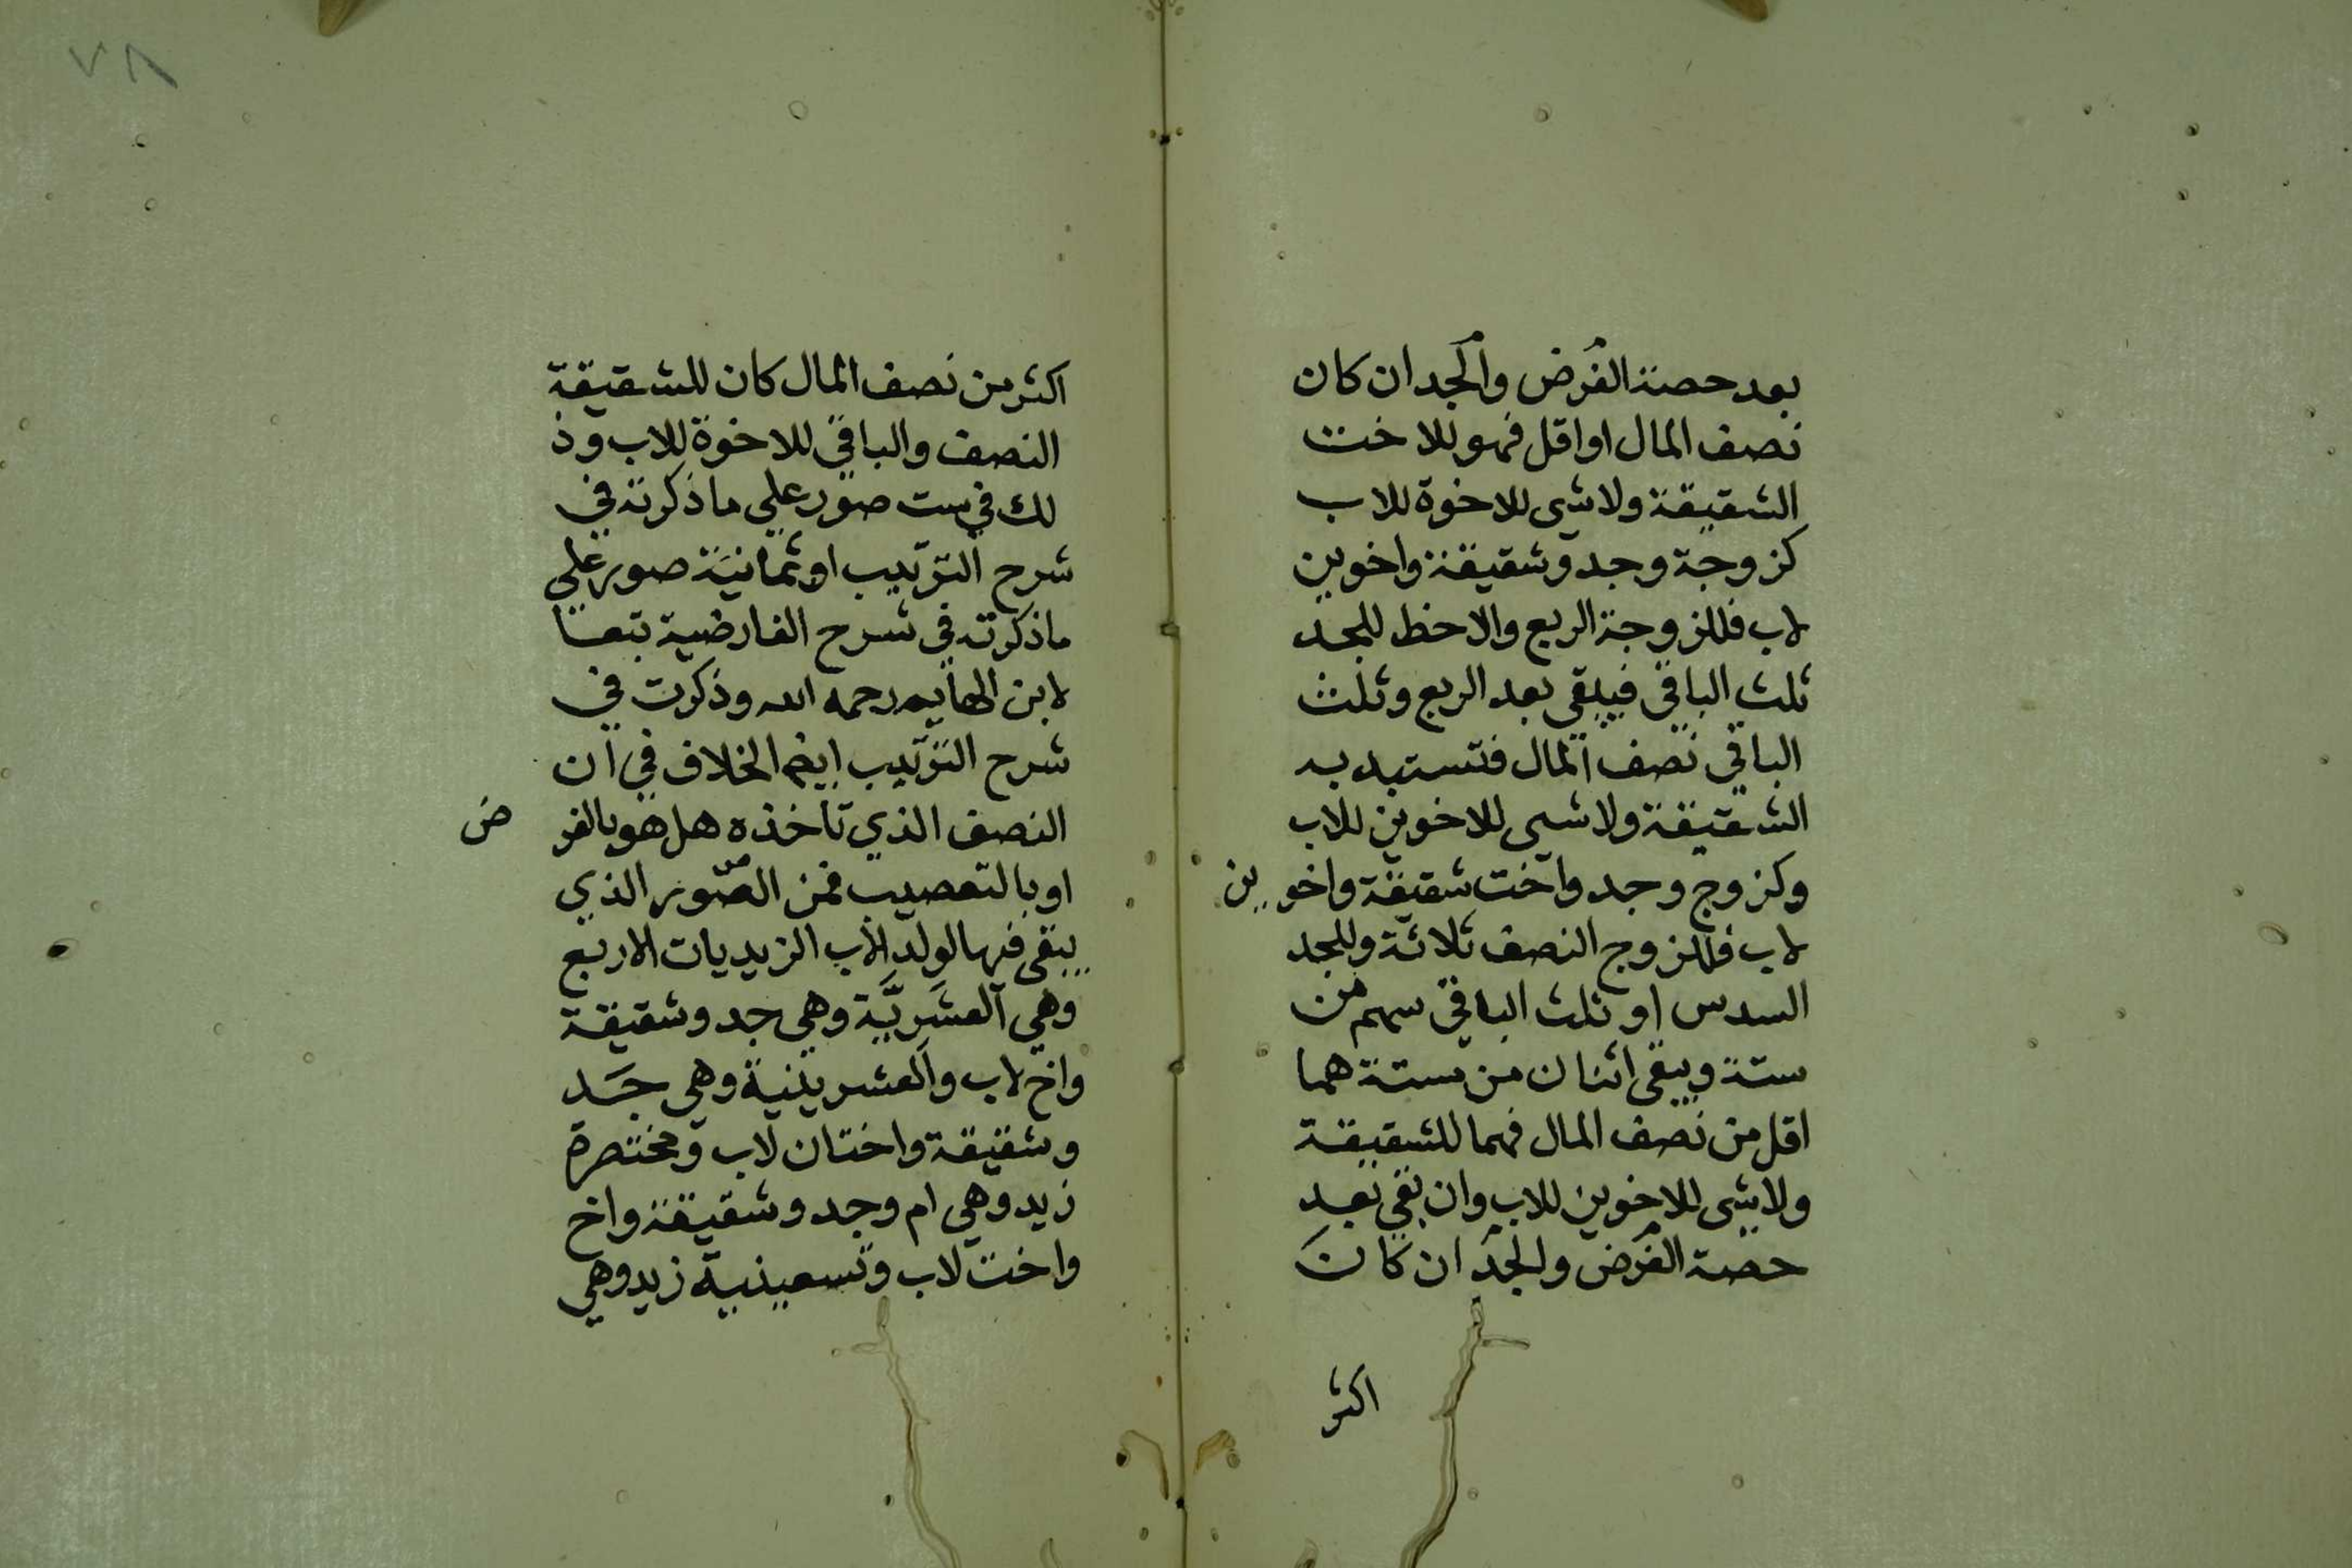 بعد حصة الفرض والجد ان كان
نصف المال او اقل فهو للاخت
الشقيقة ولا شى للاخوة للاب
كزوجة وجد وشقيقة واخوين
لاب فللزوجة الربع والاحظ للجد
ثلث الباقي فيبقي بعد الربع وثلث
الباقي نصف المال فتستبد به
الشقيقة ولا شى للاخوين للاب
وكزوج وجد واخت شقيقة واخوين
لاب فللزوج النصف ثلاثة وللجد
السدس او ثلث الباقي سهم من
ستة ويبقى اثنان من ستة هما
اقل من نصف المال فهما للشقيقة
ولا شى للاخوين للاب وان بقي بعد
حصة الفرض والجد ان كان
اكثر
٧٨
اكثر من نصف المال كان للشقيقة
النصف والباقي للاخوة للاب وذ
لك في ست صور علي ما ذكرته في
شرح الترتيب او ثمانية صور علي
ما ذكرته في شرح الفارضية تبعا
لابن الهايم رحمه الله وذكرت في
شرح الترتيب ايضا الخلاف في ان
النصف الذي تاخذه هل هو بالفرض
او بالتعصيب فمن الصور الذي
يبقى فيها لولد الاب الزيديات الاربع
وهي العشرية وهي جد وشقيقة
واخ لاب والعشرينية وهي جد
وشقيقة واختان لاب ومختصرة
زيد وهي ام وجد وشقيقة واخ
واخت لاب وتسعينية زيد وهي